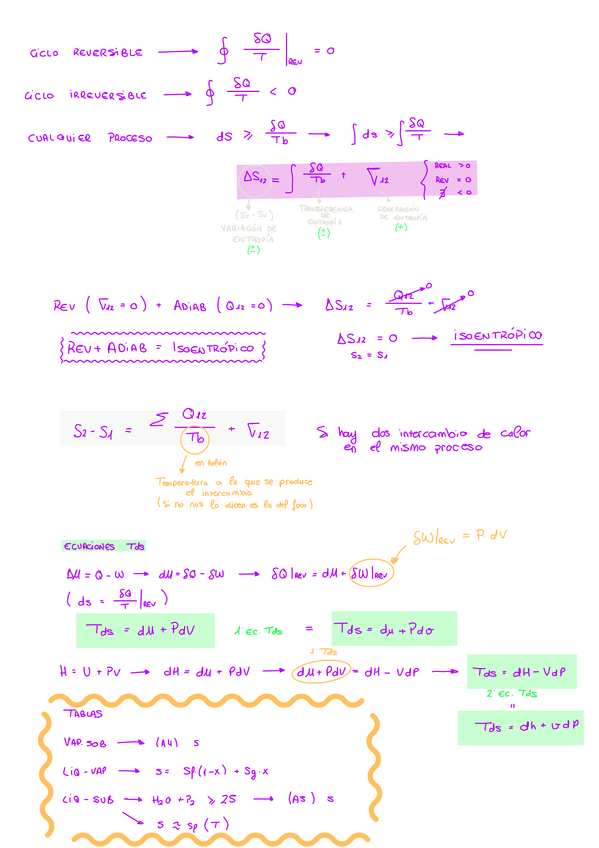 CICLO REVERSIBLE → ∮ δQ/T |REV = 0
CICLO IRREVERSIBLE → ∮ δQ/T < 0
CUALQUIER PROCESO → dS ≥ δQ/Tb → ∫ds ≥ ∫δQ/T →
ΔS12 = ∫ δQ/Tb + ∇12 { REAL > 0
REV = 0
∄ < 0
(S2-S1)
VARIACIÓN DE ENTROPÍA
(±)
TRANSFERENCIA DE ENTROPÍA
(±)
GENERACIÓN DE ENTROPÍA
(+)
REV (∇12 = 0) + ADIAB (Q12 = 0) → ΔS12 = Q12/Tb + ∇12
0 0
ΔS12 = 0 → ISOENTRÓPICO
S2 = S1
REV + ADIAB = ISOENTRÓPICO
S2 - S1 = Σ Q12/Tb + ∇12
Si hay dos intercambio de calor
en el mismo proceso
en kelvin
Temperatura a la que se produce
el intercambio
(Si no nos lo dicen es la del foco)
ECUACIONES Tds
δW|REV = P.dV
ΔU = Q - W → dU = δQ - δW → δQ|REV = dU + δW|REV
(ds = δQ/T |REV)
Tds = dU + PdV 1ª EC. Tds = Tds = du + Pdv
1ª Tds
H = U + PV → dH = du + PdV → du + PdV = dH - VdP → Tds = dH - VdP
2ª EC. Tds
"
Tds = dh + vdp
TABLAS
VAP. SOB → (A4) s
LIQ - VAP → s = Sf(1-x) + Sg.x
LIQ - SUB → H2O + P2 ≥ 25 → (A5) s
↘ s ≈ sf (T)